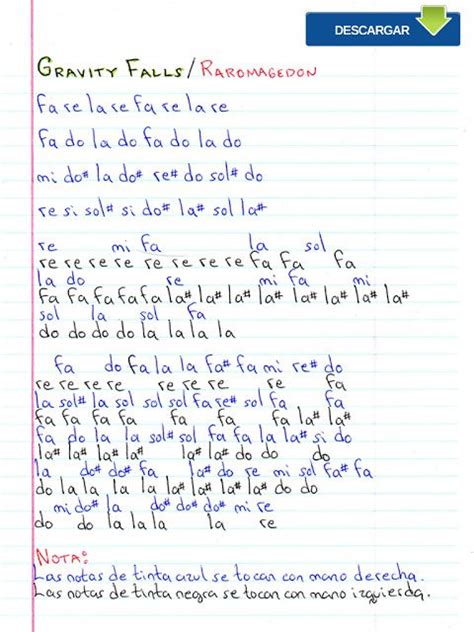 DESCARGAR
GRAVITY FALLS / RAROMAGEDON
fa re la re fa re la re
fa do la do fa do la do
mi do# la do# re# do sol# do
re si sol# si do# la# sol la#
re mi fa la sol
re re re re re re re re fa fa fa
la do re mi fa mi
fa fa fa fa fa fa la# la# la# la# la# la# la#
sol la sol fa
do do do do la la la la
fa do fa la la fa# fa mi re# do
re re re re re re re re fa
la sol# la sol sol sol fa re# sol fa fa
fa fa fa fa fa fa fa fa la# la#
fa do la la sol# sol fa fa la la# si do
la# la# la# la# la# la# do do do
la do# do# fa la# do re mi sol fa# fa
do la la la la la# la# la# la# do do
mi do# la do# do# do# mi re
do do la la la la re
NOTA:
Las notas de tinta azul se tocan con mano derecha.
Las notas de tinta negra se tocan con mano izquierda.